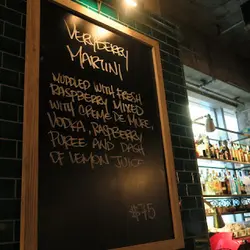 VERYBERRY
MARTINI
MUDDLED WITH FRESH
RASPBERRY MIXED
WITH CRÈME DE MURE,
VODKA, RASPBERRY
PUREE AND DASH
OF LEMON JUICE
$75